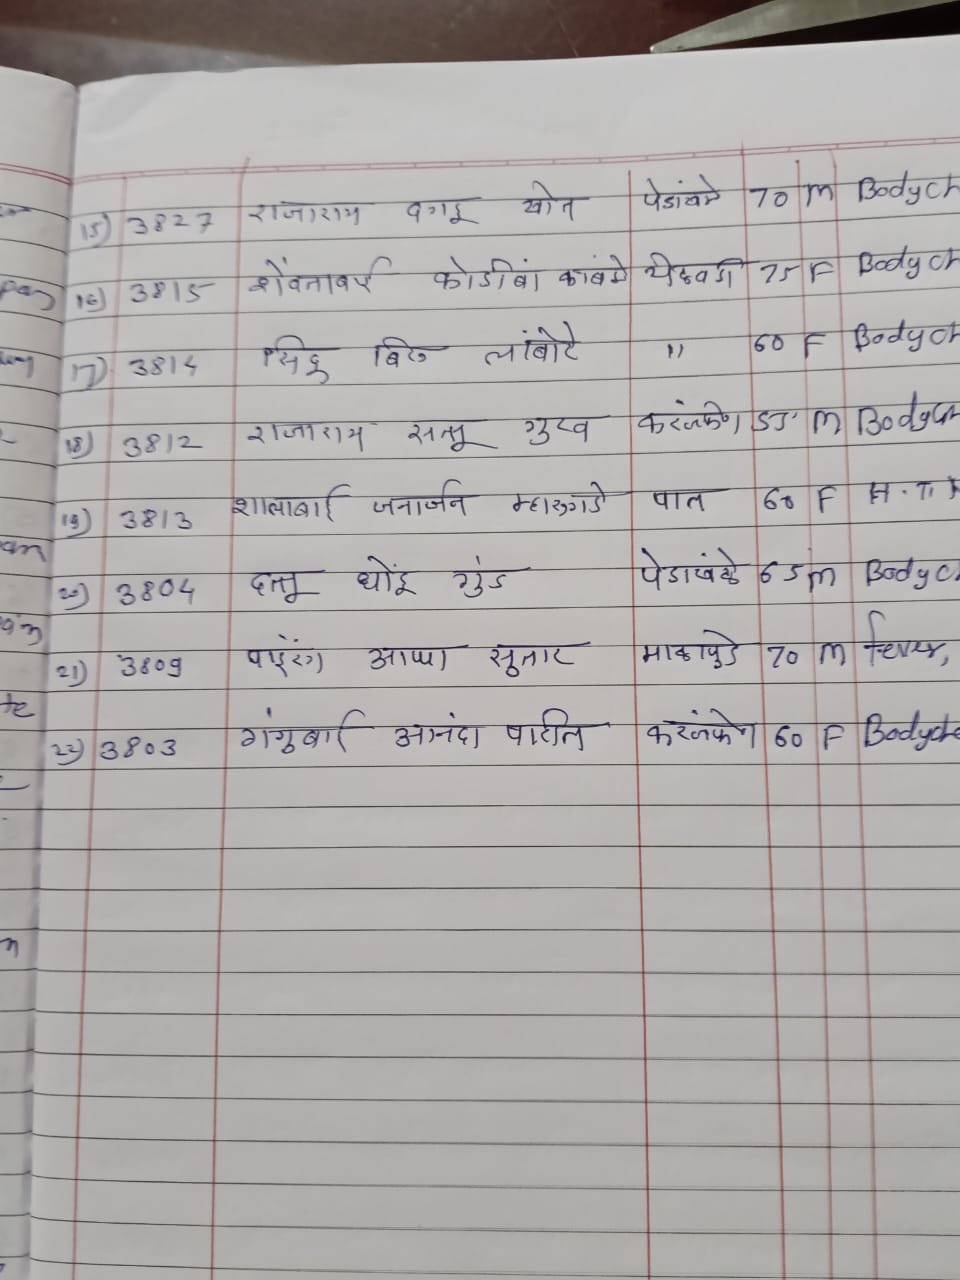 15) 3827 राजाराम दगडू खोत पेडांखळे 70 M Bodych
16) 3815 शेवंताबाई कोंडीबा कांबळे येळवडी 75 F Bodych
17) 3814 सिंधू लांबोटे " 60 F Bodych
18) 3812 राजाराम सत्तू गुरव करंजफेण 55 M Bodych
19) 3813 शालाबाई जनार्जन म्हाळुंगडे पात 60 F H.T.
20) 3804 दत्तू धोंडू गुंड पेडाखळे 65 M Bodych
21) 3809 पांडुरंग आप्पा सुतार माळापुडे 70 M fever,
22) 3803 गंगुबाई आनंदा पाटील करंजफेण 60 F Bodyche